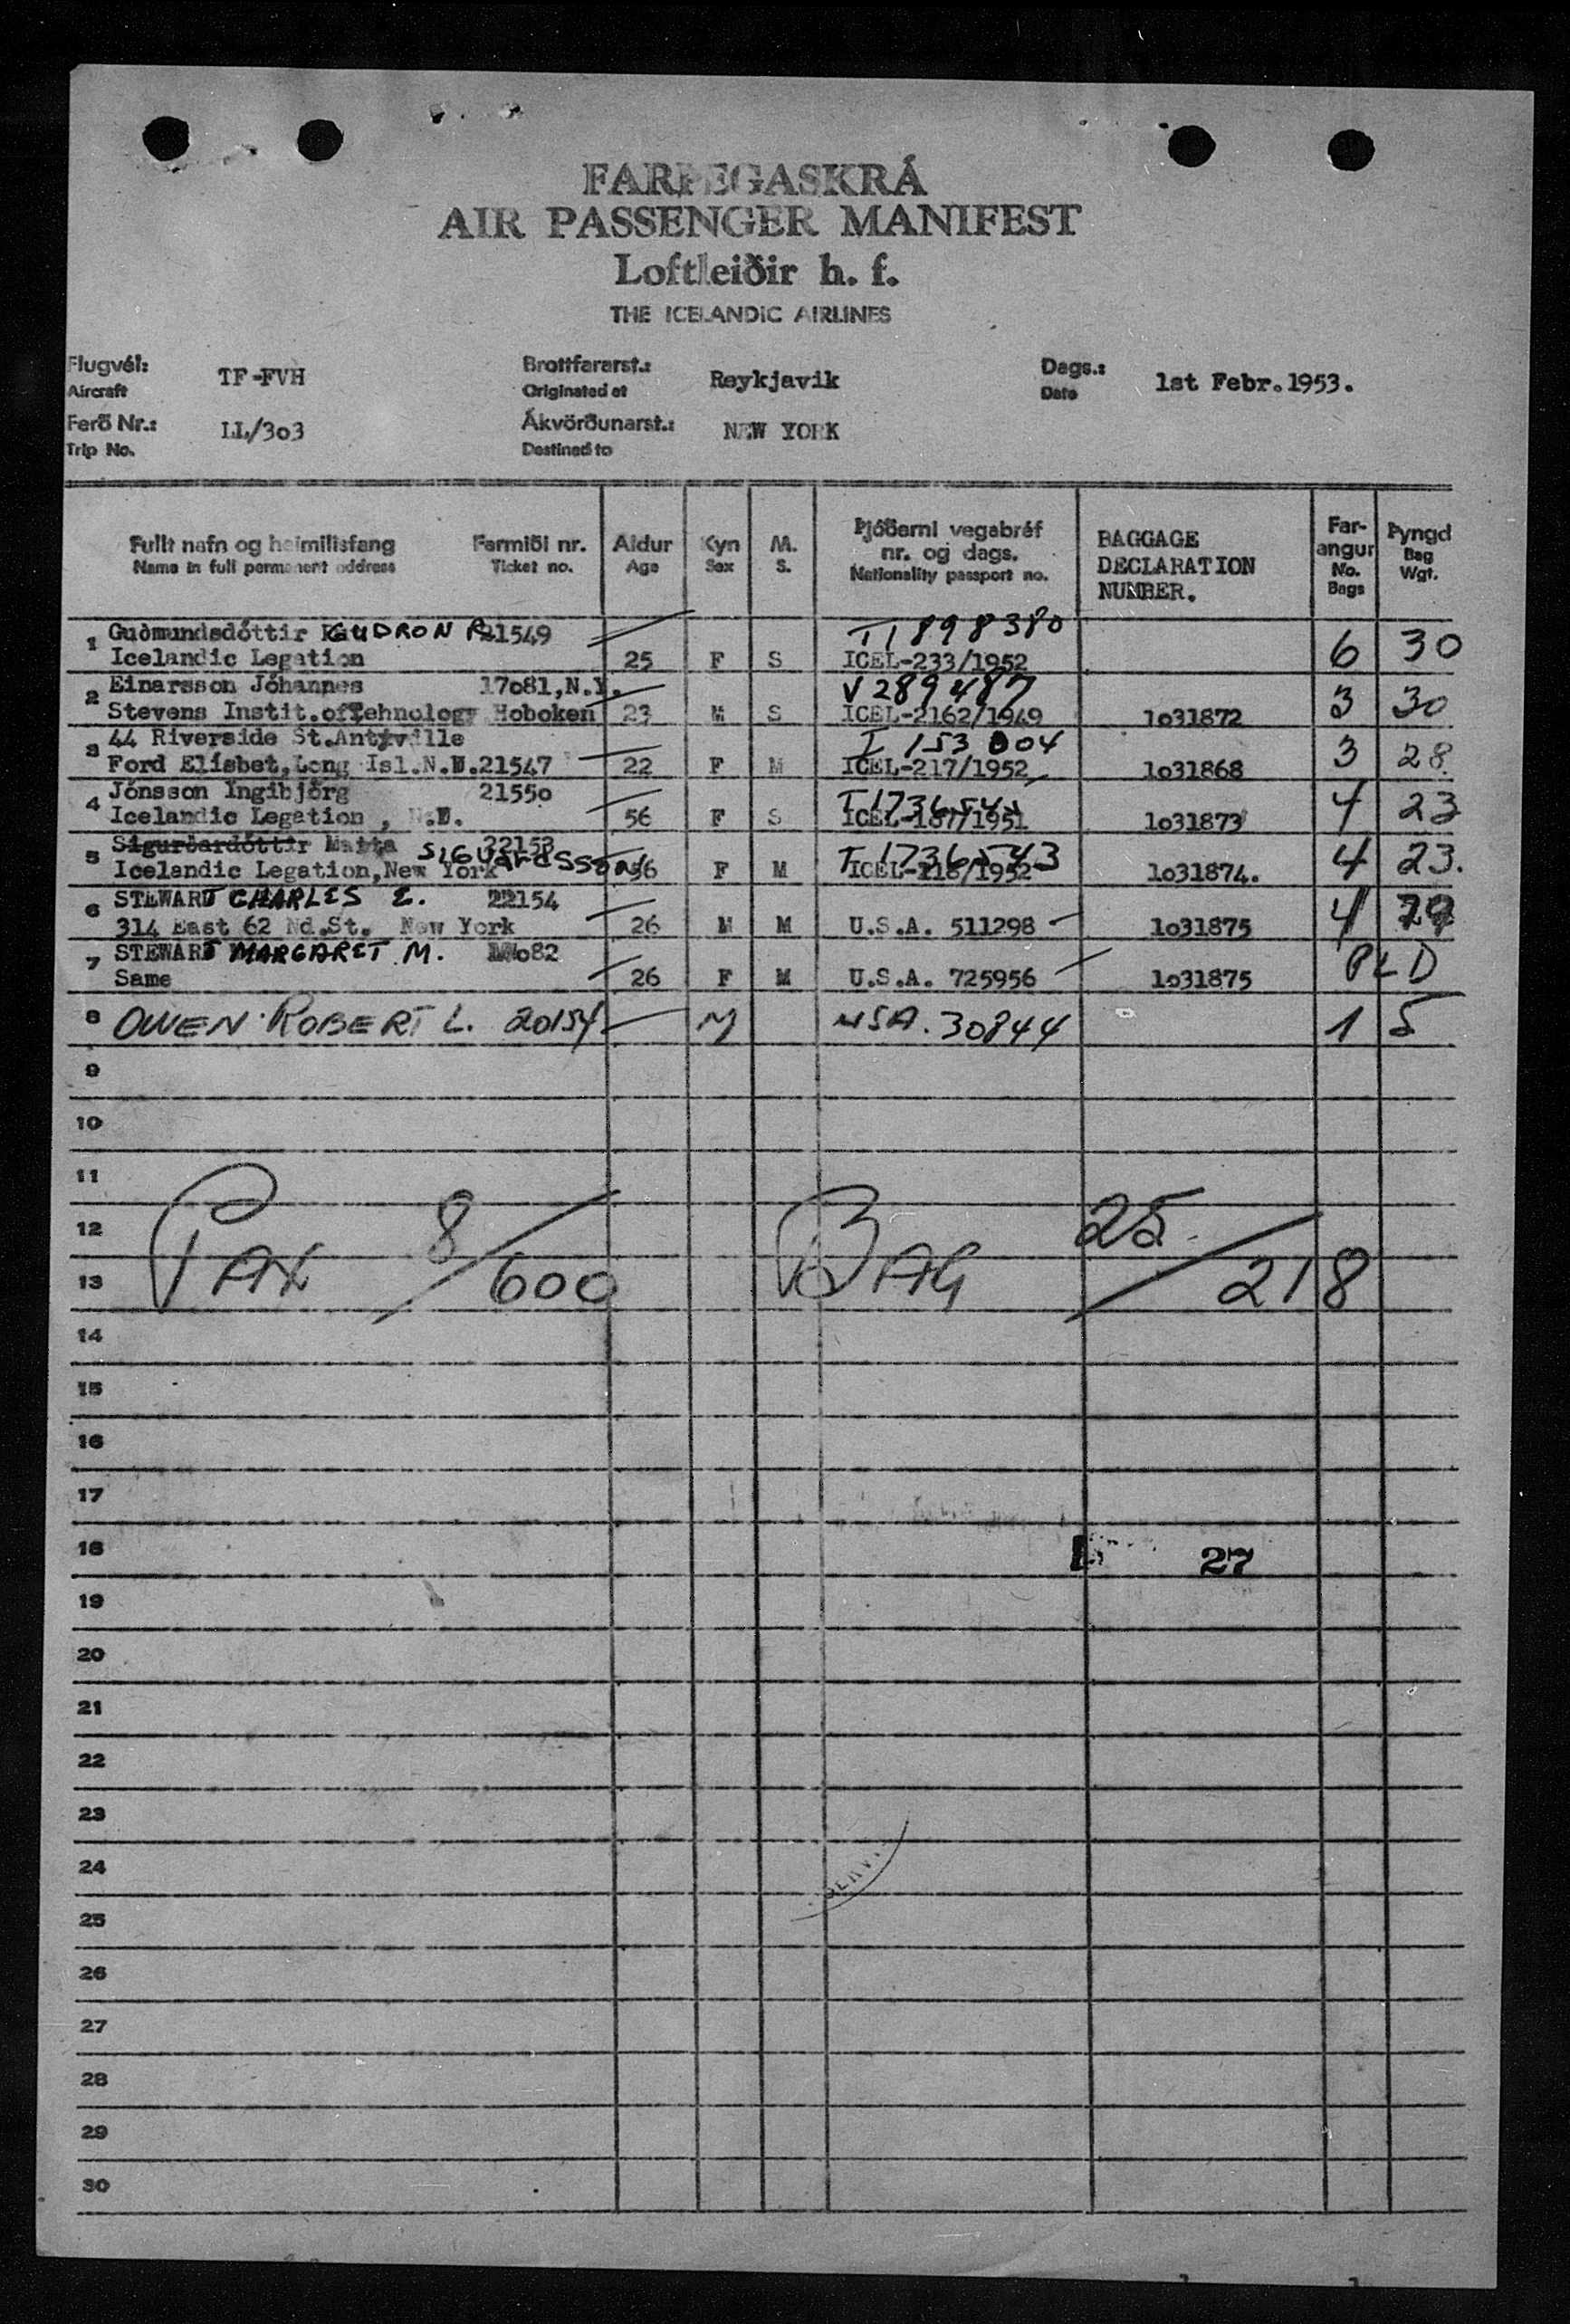 FARÞEGASKRÁ
AIR PASSENGER MANIFEST
Loftleiðir h. f.
THE ICELANDIC AIRLINES
Flugvél: TF-FVH Brottfararst.: Reykjavik Dags.: 1st Febr.1953.
Aircraft Originated at Date
Ferð Nr.: LL/303 Ákvörðunarst.: NEW YORK
Trip No. Destined to
Fullt nafn og heimilisfang Farmiði nr. Aldur Kyn M. Þjóðerni vegabréf nr. og dags. BAGGAGE DECLARATION NUMBER. Far-angur Þyngd
Name in full permanent address Ticket no. Age Sex S. Nationality passport no. No. Bags Bag Wgt.
1 Guðmundsdóttir GUDRON 21549 T1898380 6 30
Icelandic Legation 25 F S ICEL-233/1952
2 Einarsson Jóhannes 17081,N.Y. V289487 3 30
Stevens Instit.ofTehnology Hoboken 23 M S ICEL-2162/1949 1031872
3 44 Riverside St.Antyville I 153004 3 28
Ford Elísbet,Long Isl.N.Y.21547 22 F M ICEL-217/1952 1031868
4 Jónsson Ingibjörg 21550 4 23
Icelandic Legation , 56 F S ICEL-187/1951 1031873
5 Sigurðardóttir Matta 22153 SIGURDSSON T1736543 4 23.
Icelandic Legation,New York 56 F M ICEL-118/1952 1031874.
6 STEWART CHARLES E. 22154 4
314 East 62 Nd.St. New York 26 M M U.S.A. 511298 1031875
7 STEWART MARGARET M. 082 PLD
Same 26 F M U.S.A. 725956 1031875
8 OWEN ROBERT L. 20154 M USA. 30844 1 5
9
10
11
12
PAX 8/600 BAG 25/218
13
14
15
16
17
18 27
19
20
21
22
23
24
25
26
27
28
29
30